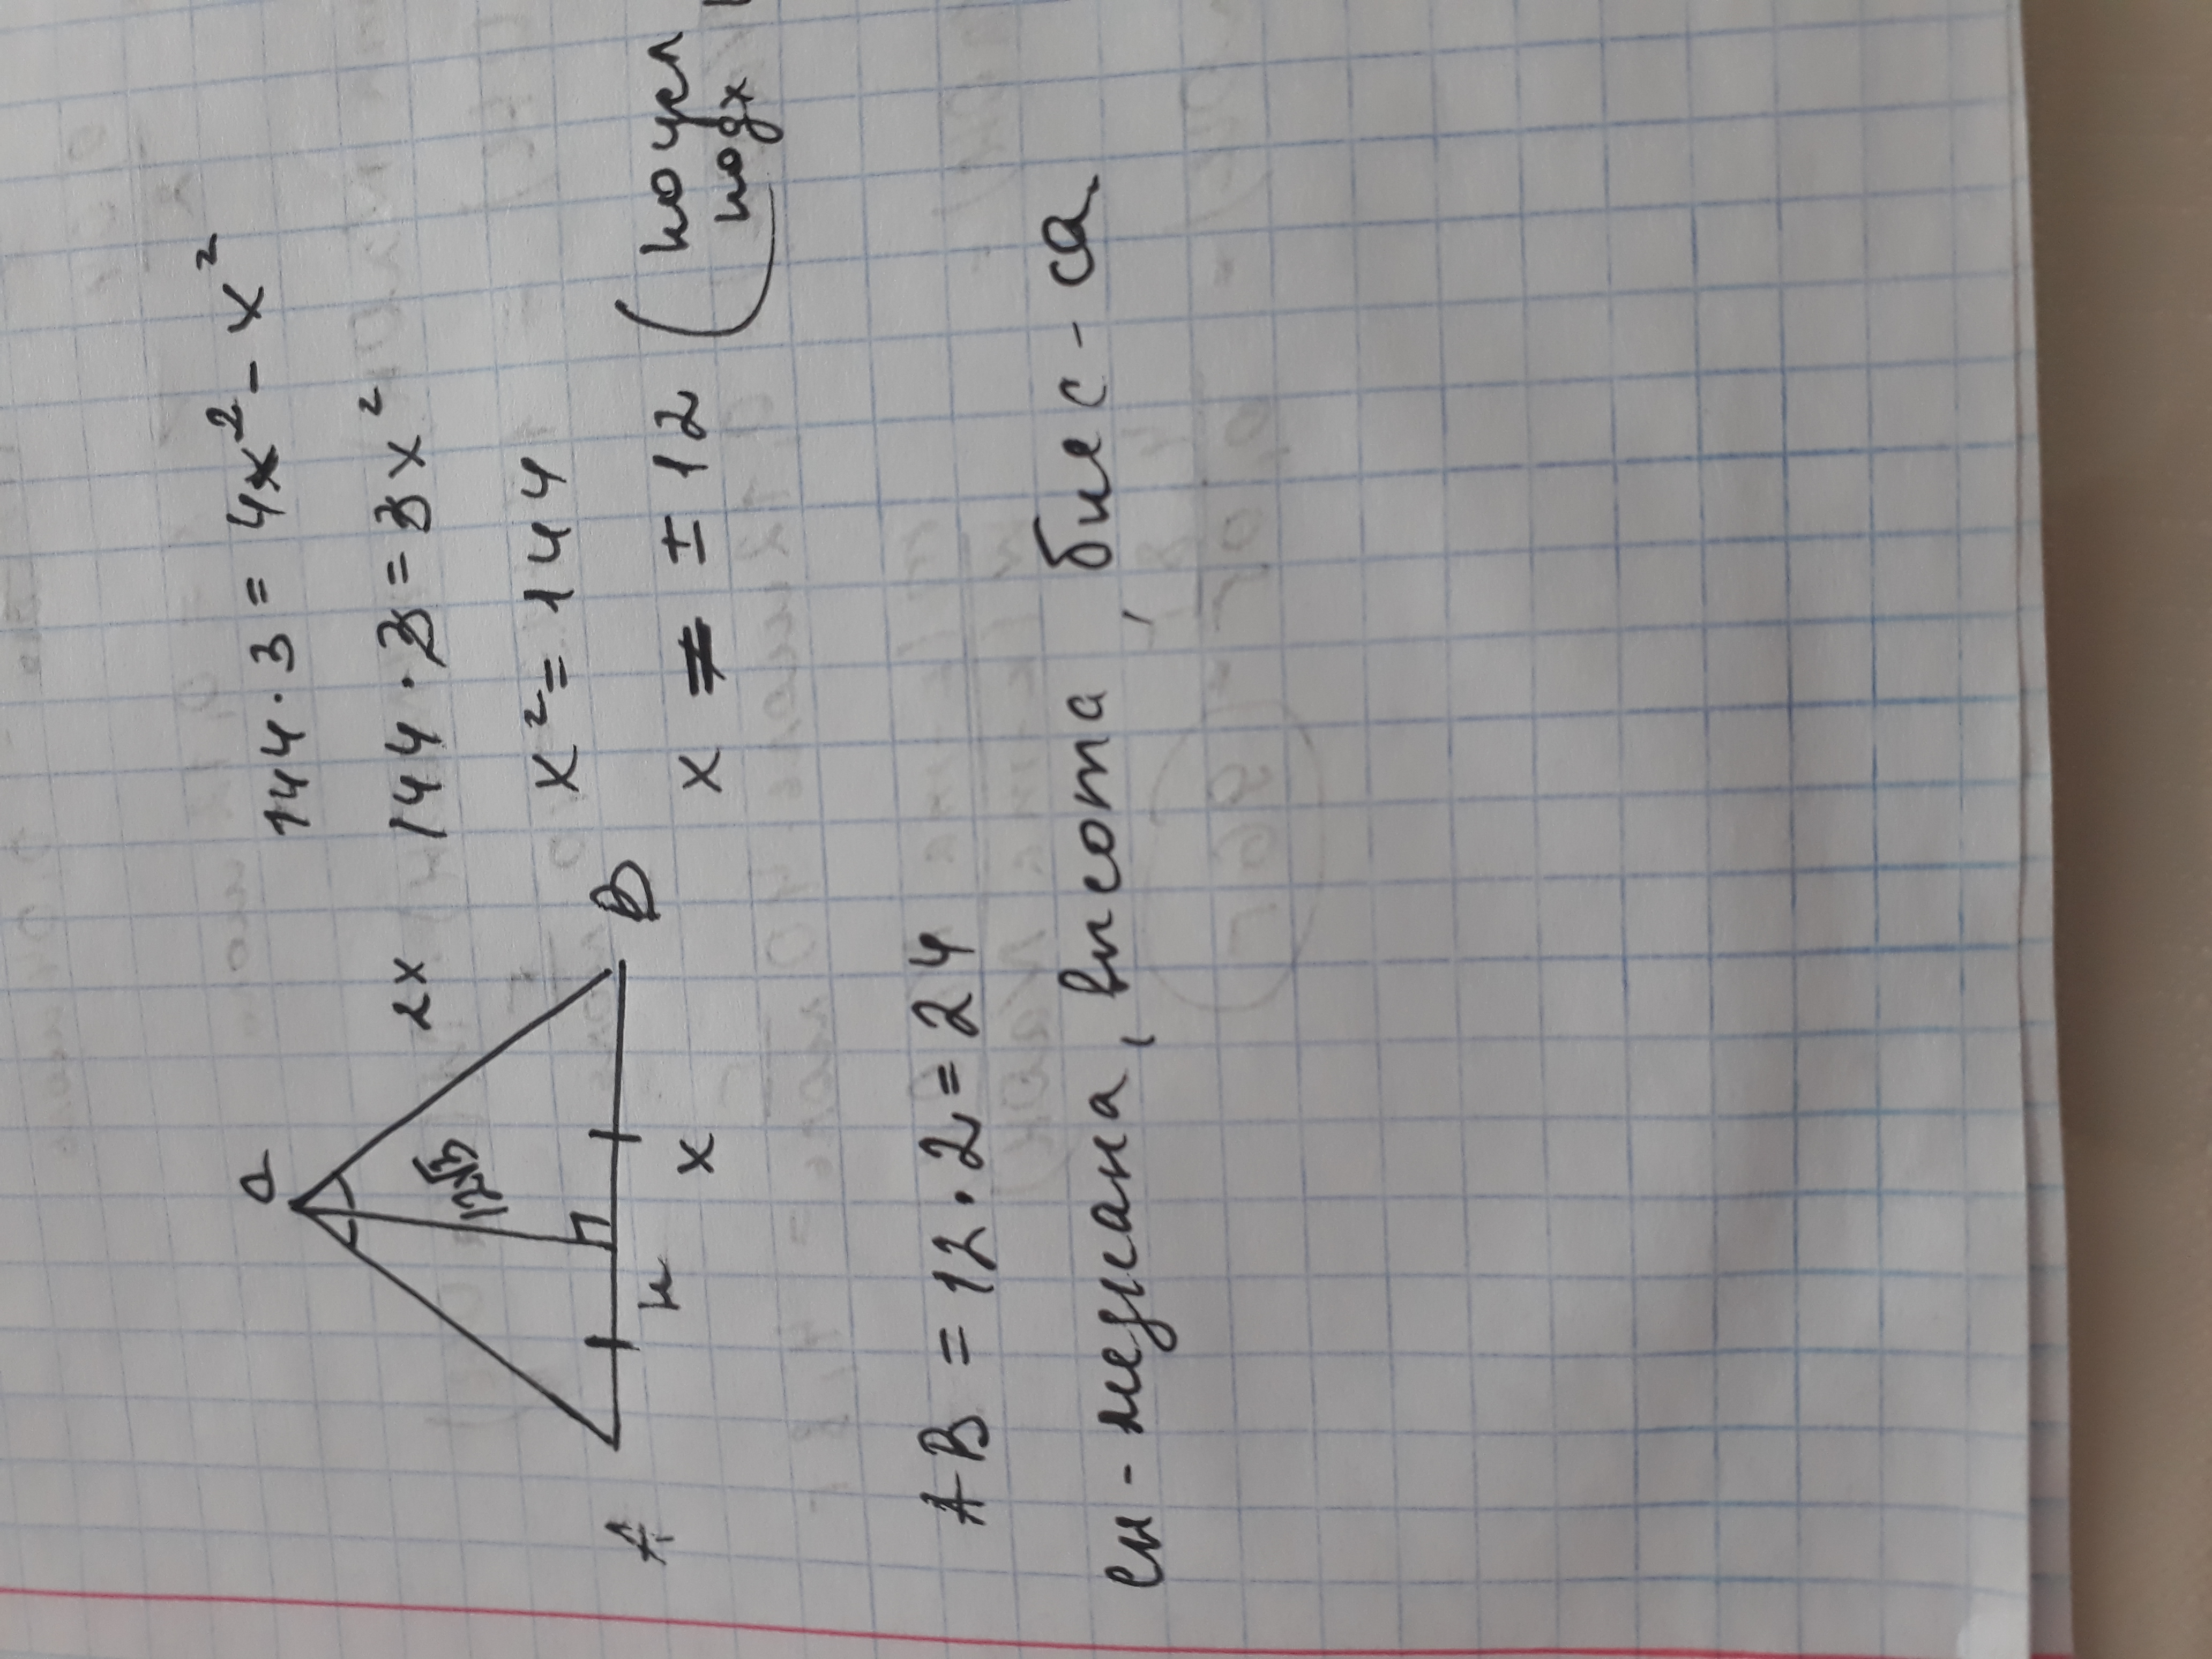 C
2x
12√3
A
н
x
B
144 · 3 = 4x² - x²
144 · 3 = 3x²
x² = 144
x = ± 12 (по усл
подх
AB = 12 · 2 = 24
СН - медиана, высота, бис-са